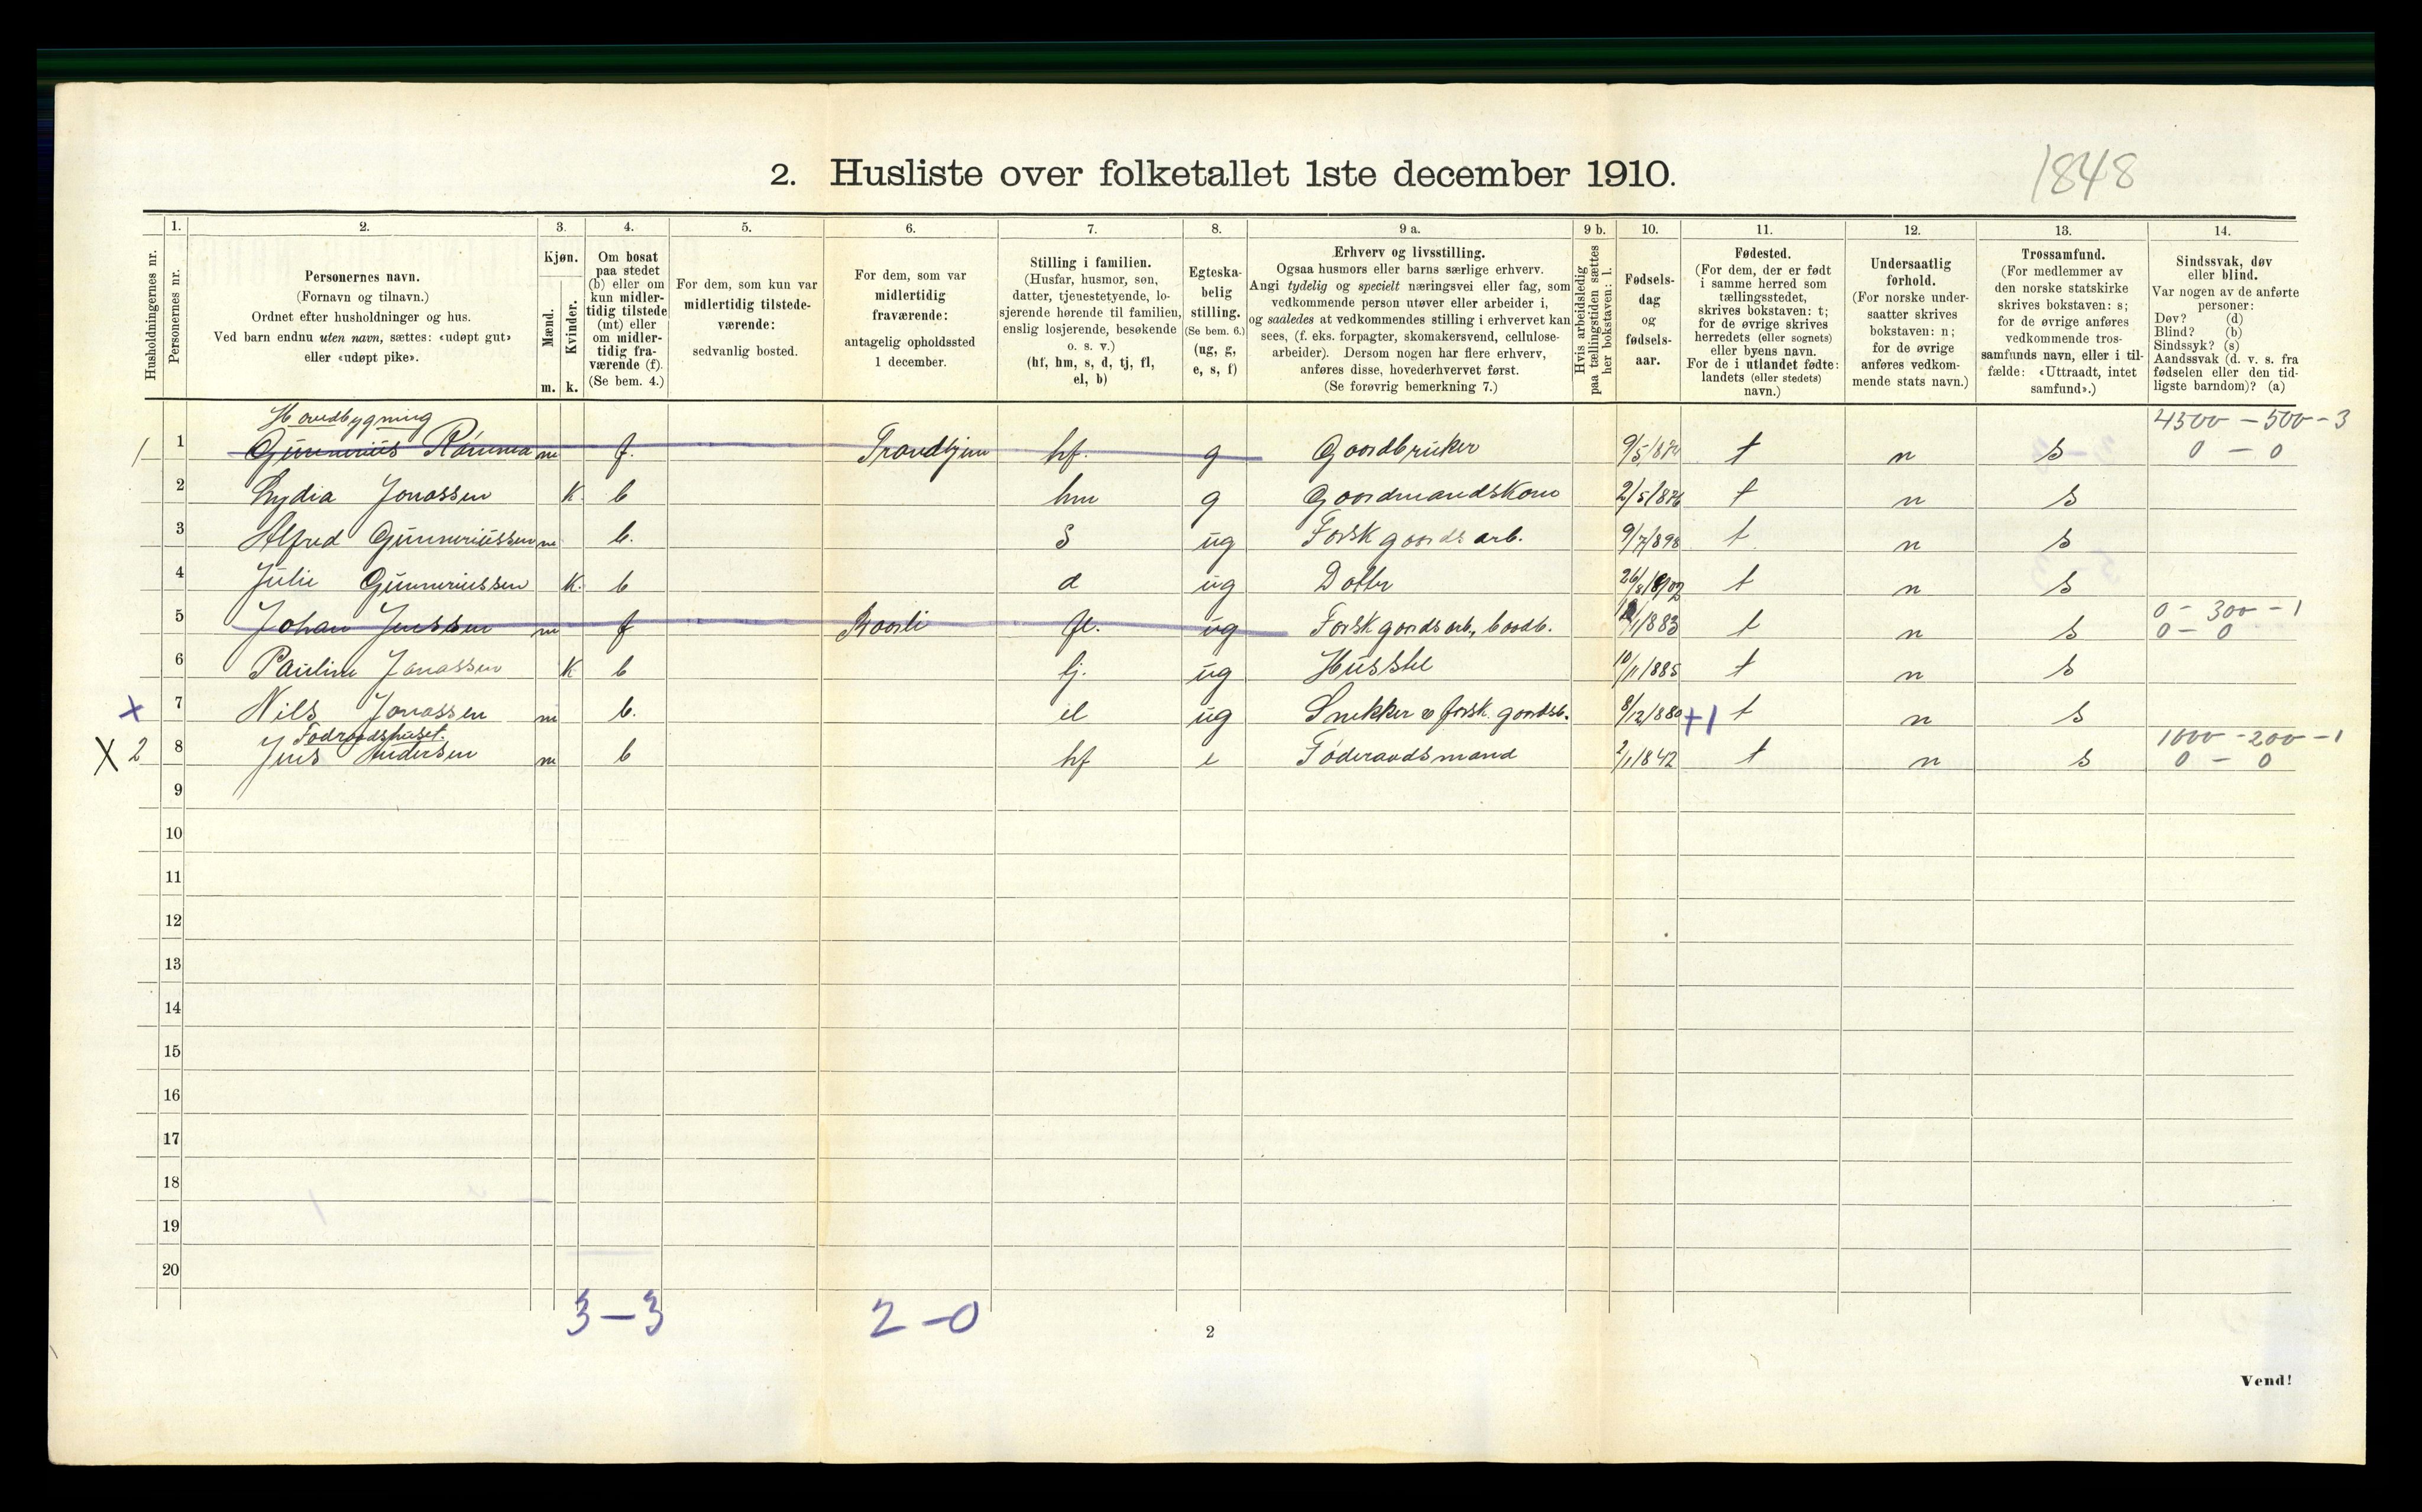 2. Husliste over folketallet 1ste december 1910.
1848
1. 2. 3. 4. 5. 6. 7. 8. 9 a. 9 b. 10. 11. 12. 13. 14.
Husholdningernes nr.
Personernes nr.
Personernes navn.
(Fornavn og tilnavn.)
Ordnet efter husholdninger og hus.
Ved barn endnu uten navn, sættes: «udøpt gut»
eller «udøpt pike».
Kjøn.
Mænd.
Kvinder.
m. k.
Om bosat
paa stedet
(b) eller om
kun midler-
tidig tilstede
(mt) eller
om midler-
tidig fra-
værende (f).
(Se bem. 4.)
For dem, som kun var
midlertidig tilstede-
værende:
sedvanlig bosted.
For dem, som var
midlertidig
fraværende:
antagelig opholdssted
1 december.
Stilling i familien.
(Husfar, husmor, søn,
datter, tjenestetyende, lo-
sjerende hørende til familien,
enslig losjerende, besøkende
o. s. v.)
(hf, hm, s, d, tj, fl,
el, b)
Egteska-
belig
stilling.
(Se bem. 6.)
(ug, g,
e, s, f)
Erhverv og livsstilling.
Ogsaa husmors eller barns særlige erhverv.
Angi tydelig og specielt næringsvei eller fag, som
vedkommende person utøver eller arbeider i,
og saaledes at vedkommendes stilling i erhvervet kan
sees, (f. eks. forpagter, skomakersvend, cellulose-
arbeider). Dersom nogen har flere erhverv,
anføres disse, hovederhvervet først.
(Se forøvrig bemerkning 7.)
Hvis arbeidsledig
paa tællingstiden sættes
her bokstaven: l.
Fødsels-
dag
og
fødsels-
aar.
Fødested.
(For dem, der er født
i samme herred som
tællingsstedet,
skrives bokstaven: t;
for de øvrige skrives
herredets (eller sognets)
eller byens navn.
For de i utlandet fødte:
landets (eller stedets)
navn.)
Undersaatlig
forhold.
(For norske under-
saatter skrives
bokstaven: n;
for de øvrige
anføres vedkom-
mende stats navn.)
Trossamfund.
(For medlemmer av
den norske statskirke
skrives bokstaven: s;
for de øvrige anføres
vedkommende tros-
samfunds navn, eller i til-
fælde: «Uttraadt, intet
samfund».)
Sindssvak, døv
eller blind.
Var nogen av de anførte
personer:
Døv? (d)
Blind? (b)
Sindssyk? (s)
Aandssvak (d. v. s. fra
fødselen eller den tid-
ligste barndom)? (a)
Hovedbygning 4500 - 500 - 3
1 1 m f. hf. g Gaardbruker t n s 0 - 0
2 Lydia Jonassen K b hm g t n s
3 Alfred Gunneriussen m b. S ug Forsk gaards arb. 9/7/898 t n s
4 Julie Gunneriussen K. b d ug Datter t n s
0 - 300 - 1
5 Johan Jenssen m f fl. ug Forsk gaards arb. t n s 0 - 0
6 Pauline Jonassen K b tj. ug Husstel 10/11/885 t n s
x 7 Nils Jonassen m b. el ug Snekker & forsk. gaardsb. 8/12/880 +1 t n s
Fodraadshuset. 1000 - 200 - 1
X 2 8 Jens Andersen m b hf e Føderaadsmand 2/1/842 t n s 0 - 0
9
10
11
12
13
14
15
16
17
18
19
20
3-3 2-0
2
Vend!